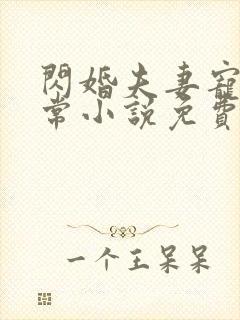 閃婚夫妻寵
常小說免費
一个王呆呆